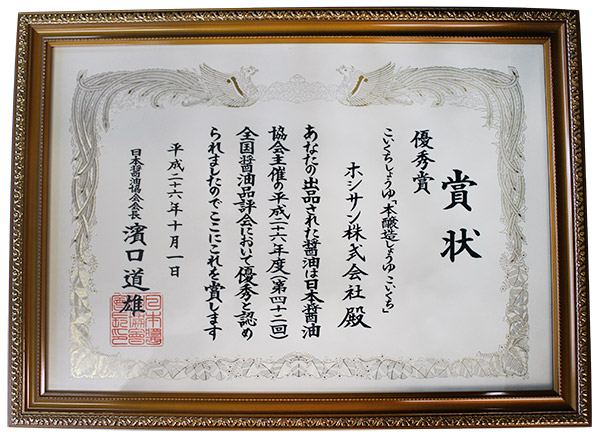 賞状
優秀賞
こいくちしょうゆ「本醸造しょうゆこいくち」
ホシサン株式会社殿
あなたの出品された醤油は日本醤油
協会主催の平成二十六年度(第四十二回)
全国醤油品評会において優秀と認め
られましたのでここにこれを賞します
平成二十六年十月一日
日本醤油協会会長 濱口道雄